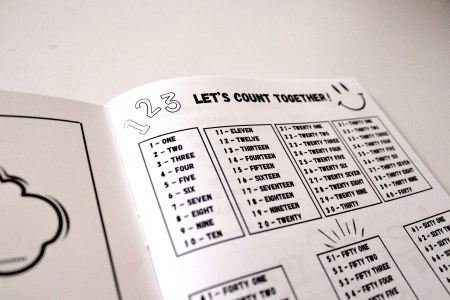 1 2 3 LET'S COUNT TOGETHER!
1 - ONE
2 - TWO
3 - THREE
4 - FOUR
5 - FIVE
6 - SIX
7 - SEVEN
8 - EIGHT
9 - NINE
10 - TEN
11 - ELEVEN
12 - TWELVE
13 - THIRTEEN
14 - FOURTEEN
15 - FIFTEEN
16 - SIXTEEN
17 - SEVENTEEN
18 - EIGHTEEN
19 - NINETEEN
20 - TWENTY
21 - TWENTY ONE
22 - TWENTY TWO
23 - TWENTY THREE
24 - TWENTY FOUR
25 - TWENTY FIVE
26 - TWENTY SIX
27 - TWENTY SEVEN
28 - TWENTY EIGHT
29 - TWENTY NINE
30 - THIRTY
31 - THIRTY ONE
32 - THIRTY TWO
33 - THIRTY THREE
34 - THIRTY FOUR
35 - THIRTY FIVE
36 - THIRTY SIX
37 - THIRTY SEVEN
38 - THIRTY EIGHT
39 - THIRTY NINE
40 - FORTY
41 - FORTY ONE
FORTY TWO
51 - FIFTY ONE
52 - FIFTY TWO
53 - FIFTY THREE
54 - FIFTY FOUR
FIFTY FIVE
61 - SIXTY
62 - SIXTY
63 - SIXTY
64 - SIXTY